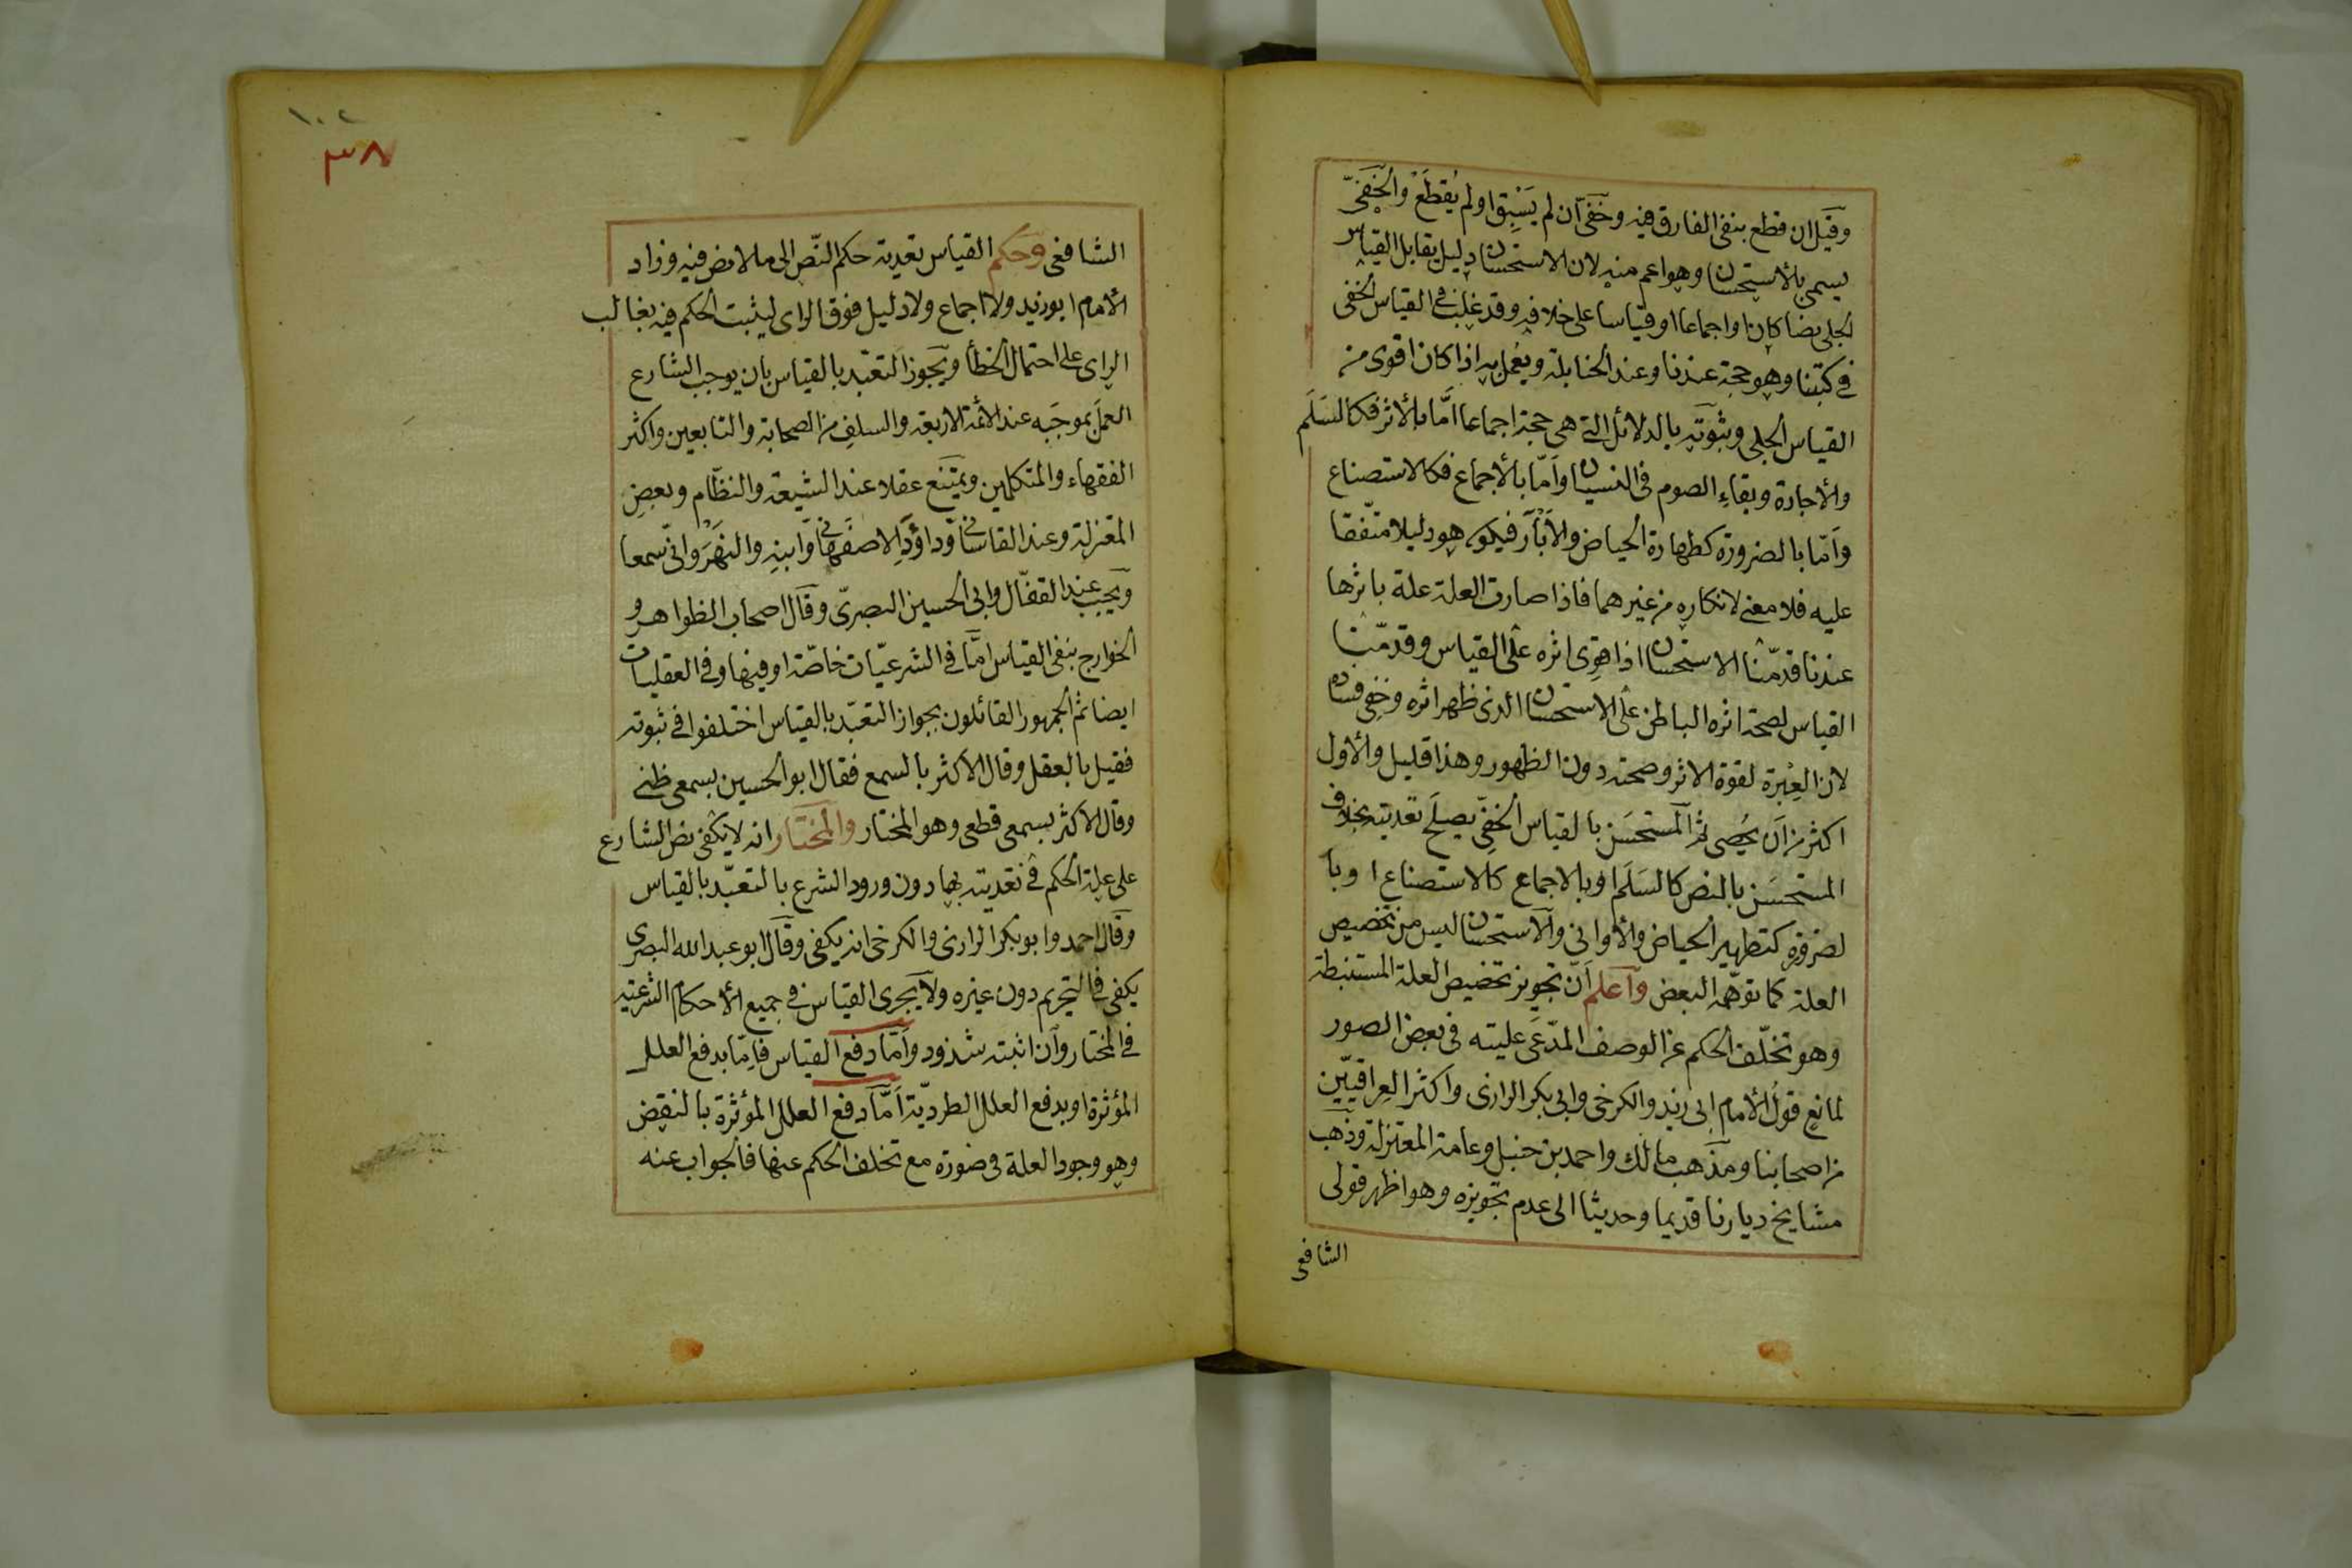 وقيل ان قطع بنفى الفارق فيه وخفى ان لم يسبق او لم يقطع والخفى
يسمى بالاستحسان وهو اعم منه لان الاستحسان دليل يقابل القياس
الجلى نصا كان او اجماعا او قياسا على خلافه وقد غلب فى القياس الخفى
فى كتبنا وهو حجة عندنا وعند الحنابلة ويعمل به اذا كان اقوى من
القياس الجلى وثبوته بالدلائل التى هى حجة اجماعا اما بالاثر فكالسلم
والاجارة وبقاء الصوم فى النسيان واما بالاجماع فكالاستصناع
واما بالضرورة كطهارة الحياض والآبار فيكون هو دليلا متفقا
عليه فلا معنى لانكاره من غيرهما فاذا صارت العلة علة باثرها
عندنا قدمنا الاستحسان اذا قوى اثره على القياس وقدمنا
القياس لصحة اثره الباطن على الاستحسان الذى ظهر اثره وخفى فساده
لان العبرة لقوة الاثر وصحته دون الظهور وهذا قليل والاول
اكثر من ان يحصى ثم المستحسن بالقياس الخفى يصلح تعديته بخلاف
المستحسن بالنص كالسلم او بالاجماع كالاستصناع او با
لضرورة كتطهير الحياض والاوانى والاستحسان ليس من تخصيص
العلة كما توهمه البعض واعلم ان تجويز تخصيص العلة المستنبطة
وهو تخلف الحكم عن الوصف المدعى عليته فى بعض الصور
لمانع قول الامام ابى زيد والكرخى وابى بكر الرازى واكثر العراقيين
من اصحابنا ومذهب مالك واحمد بن حنبل وعامة المعتزلة وذهب
مشايخ ديارنا قديما وحديثا الى عدم تجويزه وهو اظهر قولى
الشافعى
١٠٢
٣٨
الشافعى وحكم القياس تعدية حكم النص الى ما لا نص فيه وزاد
الامام ابو زيد ولا اجماع ولا دليل فوق الراى ليثبت الحكم فيه بغالب
الراى على احتمال الخطأ ويجوز التعبد بالقياس بان يوجب الشارع
العمل بموجبه عند الائمة الاربعة والسلف من الصحابة والتابعين واكثر
الفقهاء والمتكلمين ويمتنع عقلا عند الشيعة والنظام وبعض
المعتزلة وعند القاسانى وداود الاصفهانى وابنه والنهروانى سمعا
ويجب عند القفال وابى الحسين البصرى وقال اصحاب الظواهر و
الخوارج بنفى القياس اما فى الشرعيات خاصة او فيها وفى العقليات
ايضا ثم الجمهور القائلون بجواز التعبد بالقياس اختلفوا فى ثبوته
فقيل بالعقل وقال الاكثر بالسمع فقال ابو الحسين بسمعى ظنى
وقال الاكثر بسمعى قطعى وهو المختار والمختار انه لا يكفى نص الشارع
على علة الحكم فى تعديته بها دون ورود الشرع بالتعبد بالقياس
وقال احمد وابو بكر الرازى والكرخى انه يكفى وقال ابو عبد الله البصرى
يكفى فى التحريم دون غيره ولا يجرى القياس فى جميع الاحكام الشرعية
فى المختار وان اثبته شذوذ واما دفع القياس فاما بدفع العلل
المؤثرة او بدفع العلل الطردية اما دفع العلل المؤثرة بالنقض
وهو وجود العلة فى صورة مع تخلف الحكم عنها فالجواب عنه